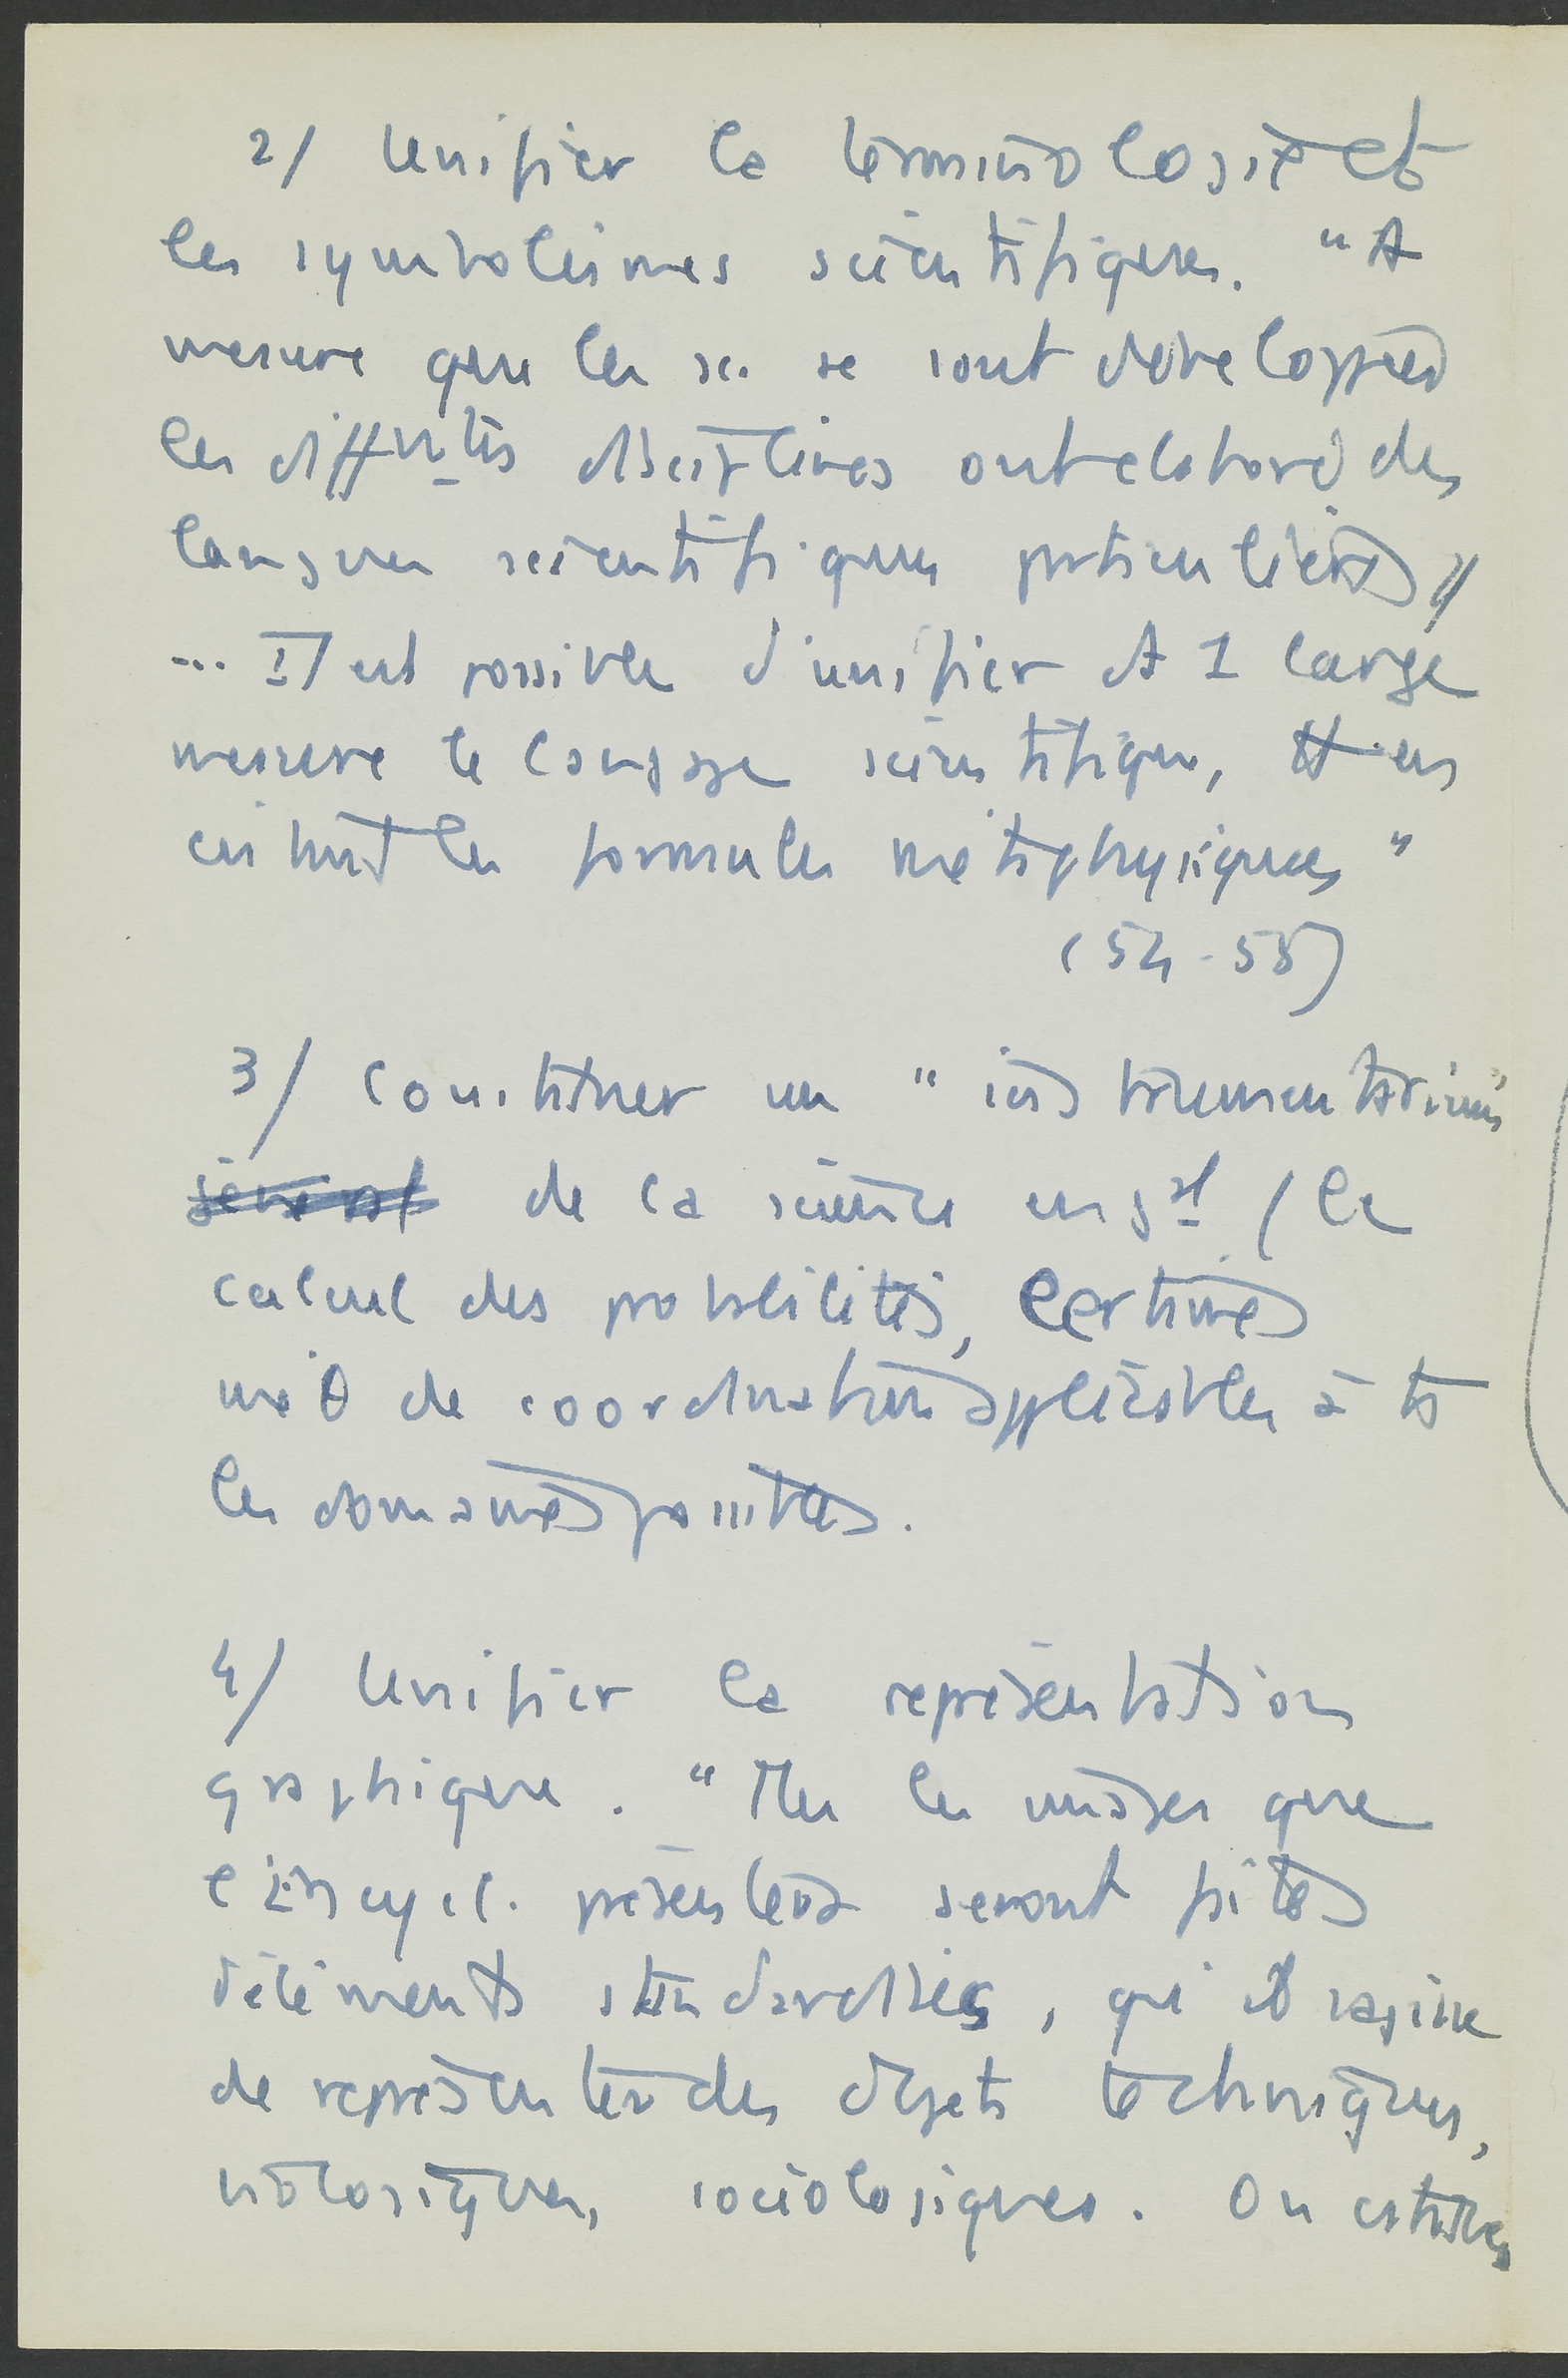 2/ Unifier la terminologie et
les symbolismes scientifiques. "A
mesure que les sc. se sont développées
les difftes disciplines ont elaboré des
langues scientifiques particulières"
... Il est possible d'unifier ds 1 large
mesure le langage scientifique, en
évitant les formules métaphysiques"
(54-55)
3/ Constituer un "instrumentarium"
général de la science en gal (le
calcul des probabilités, certaines
méθ de coordination applicables à ts
les domaines possibles.
4/ Unifier la représentation
graphique. "Ttes les images que
l'Encycl. présentera seront faites
d'éléments standardisés, qu'il s'agisse
de représenter des objets techniques,
biologiques, sociologiques. On